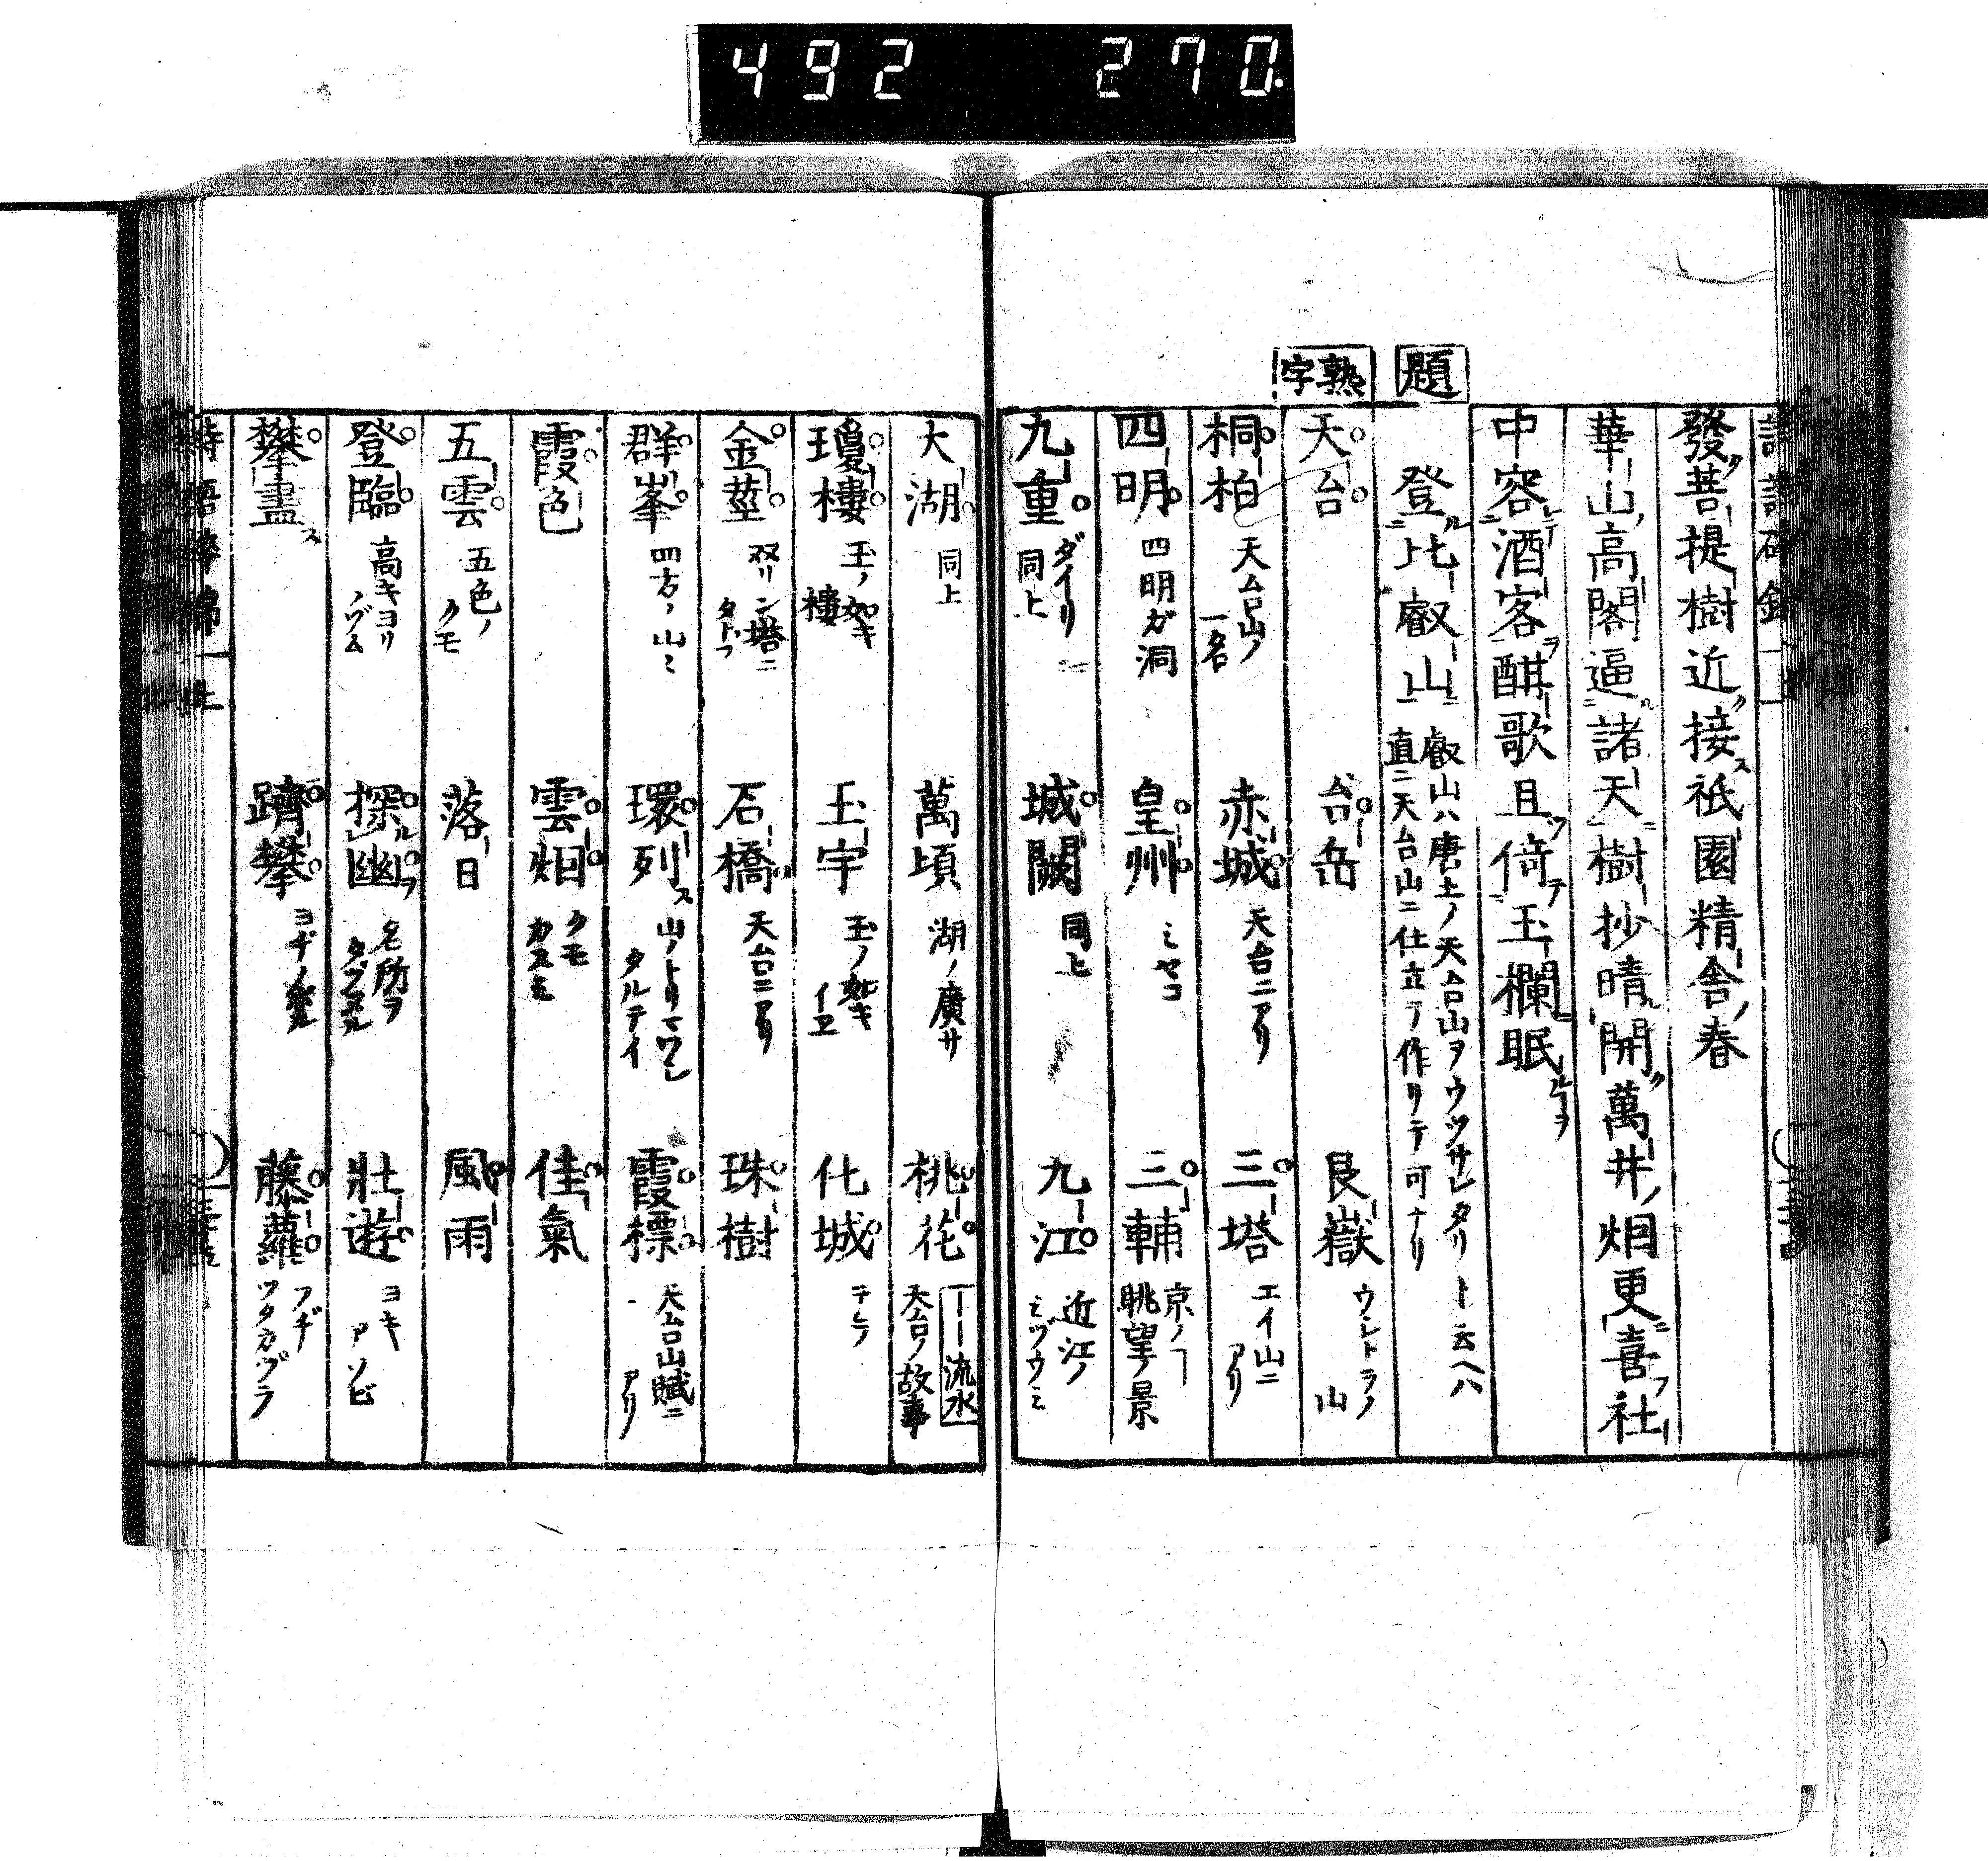 492 270.
發菩提樹近接祇園精舎ノ春
華山ノ高閣逼諸天樹抄晴開萬井ノ烟更喜社
中容酒客酣歌且倚玉欄眠
題
登比叡山
叡山ハ唐土ノ天台山ヲウツサレタリト云ヘハ
直ニ天台山ニ仕立テ作リテ可ナリ
熟字
天台 台岳 艮嶽 ウシトラノ山
桐柏 天台山ノ一名 赤城 天台ニアリ 三塔 エイ山ニアリ
四明 四明ガ洞 皇州 ミヤコ 三輔 京ノ眺望ノ景
九重 ダイリ 同上 城闕 同上 九江 近江ノミヅウミ
大湖 同上 萬頃 湖ノ廣サ 桃花 流水 天台ノ故事
瓊樓 玉ノ如キ樓 玉宇 玉ノ如キイヱ 化城 テラ
金莖 双リン塔ニタトフ 石橋 天台ニアリ 珠樹
群峯 四方ノ山ミ 環列ス 山ノトリマワシタルテイ 霞標 天台山賦ニアリ
霞色 雲烟 クモカスミ 佳氣
五雲 五色ノクモ 落日 風雨
登臨 高キヨリノゾム 探幽 名所ヲタヅヌル 壯遊 ヨキアソビ
攀盡ス 躋攀 ヨヂノボル 藤蘿 フヂツタカヅラ